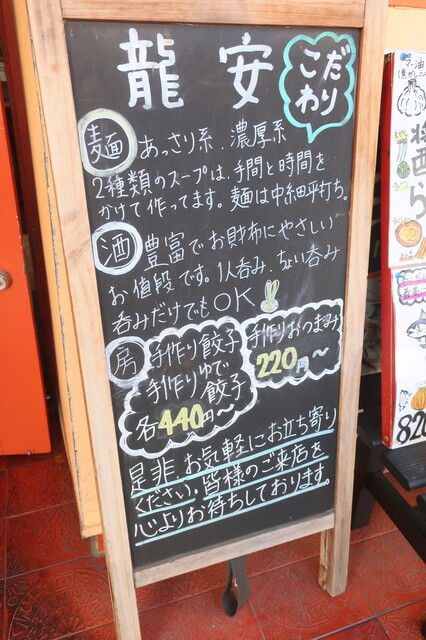 龍安
こだ
わり
麺 あっさり系、濃厚系
2種類のスープは、手間と時間を
かけて作ってます。麺は中細平打ち。
酒 豊富でお財布にやさしい
お値段です。1人呑み、ちょい呑み
呑みだけでもOK
房 手作り餃子
手作りゆで
餃子
各440円〜
手作りおつまみ
220円〜
是非、お気軽にお立ち寄り
ください。皆様のご来店を
心よりお待ちしております。
マー油
820